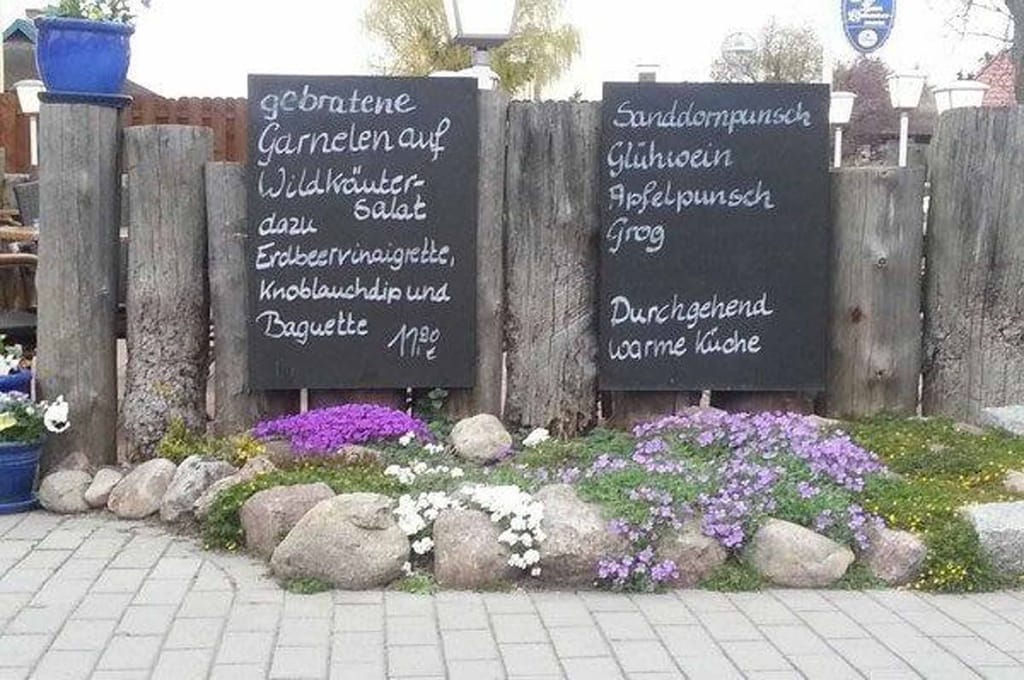 gebratene
Garnelen auf
Wildkräuter-
salat
dazu
Erdbeervinaigrette,
Knoblauchdip und
Baguette
11,20 €
Sanddornpunsch
Glühwein
Apfelpunsch
Grog
Durchgehend
warme Küche